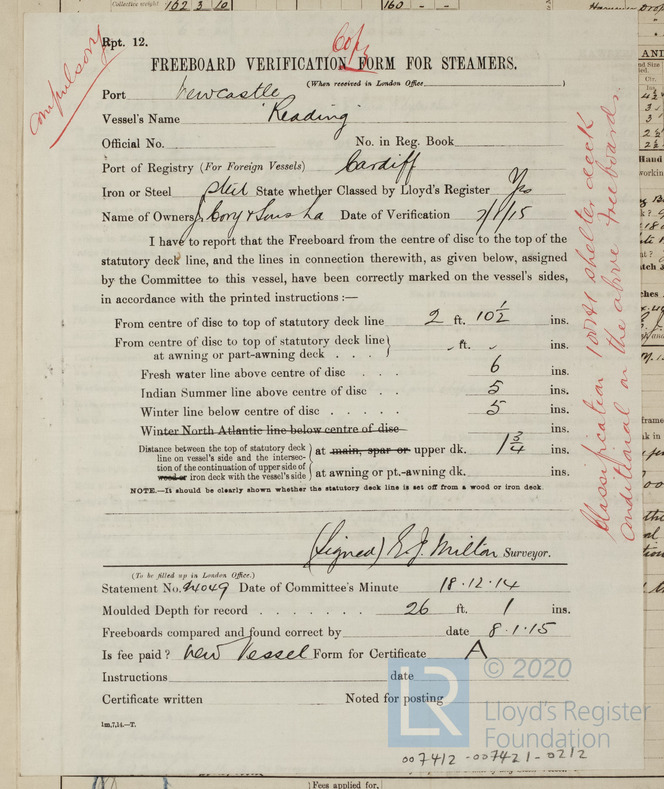 Collective weight 102 3 10 160 - -
Rpt. 12.
Copy
compulsory
FREEBOARD VERIFICATION FORM FOR STEAMERS.
(When received in London Office )
Port Newcastle
Vessel's Name "Reading"
Official No. No. in Reg. Book
Port of Registry (For Foreign Vessels) Cardiff
Iron or Steel Steel State whether Classed by Lloyd's Register Yes
Name of Owners J. Cory & Sons Ld Date of Verification 7/1/15
I have to report that the Freeboard from the centre of disc to the top of the
statutory deck line, and the lines in connection therewith, as given below, assigned
by the Committee to this vessel, have been correctly marked on the vessel's sides,
in accordance with the printed instructions :—
From centre of disc to top of statutory deck line 2 ft. 10½ ins.
From centre of disc to top of statutory deck line
at awning or part-awning deck . . . } - ft. - ins.
Fresh water line above centre of disc . . . 6 ins.
Indian Summer line above centre of disc . . 5 ins.
Winter line below centre of disc . . . . . 5 ins.
Winter North Atlantic line below centre of disc ins.
Distance between the top of statutory deck
line on vessel's side and the intersec-
tion of the continuation of upper side of
wood or iron deck with the vessel's side
} at main, spar or upper dk. 1¾ ins.
} at awning or pt.-awning dk. ins.
NOTE.—It should be clearly shown whether the statutory deck line is set off from a wood or iron deck.
(Signed) E. J. Milton Surveyor.
(To be filled up in London Office.)
Statement No. 24049 Date of Committee's Minute 18.12.14
Moulded Depth for record . . . . . . . 26 ft. 1 ins.
Freeboards compared and found correct by date 8.1.15
Is fee paid ? New Vessel Form for Certificate A
Instructions date
Certificate written Noted for posting
1m,7,14.—T.
Classification 100A1 shelter deck
conditional on the above freeboards.
LR
© 2020
Lloyd's Register
Foundation
007412-007421-0212
Fees applied for,